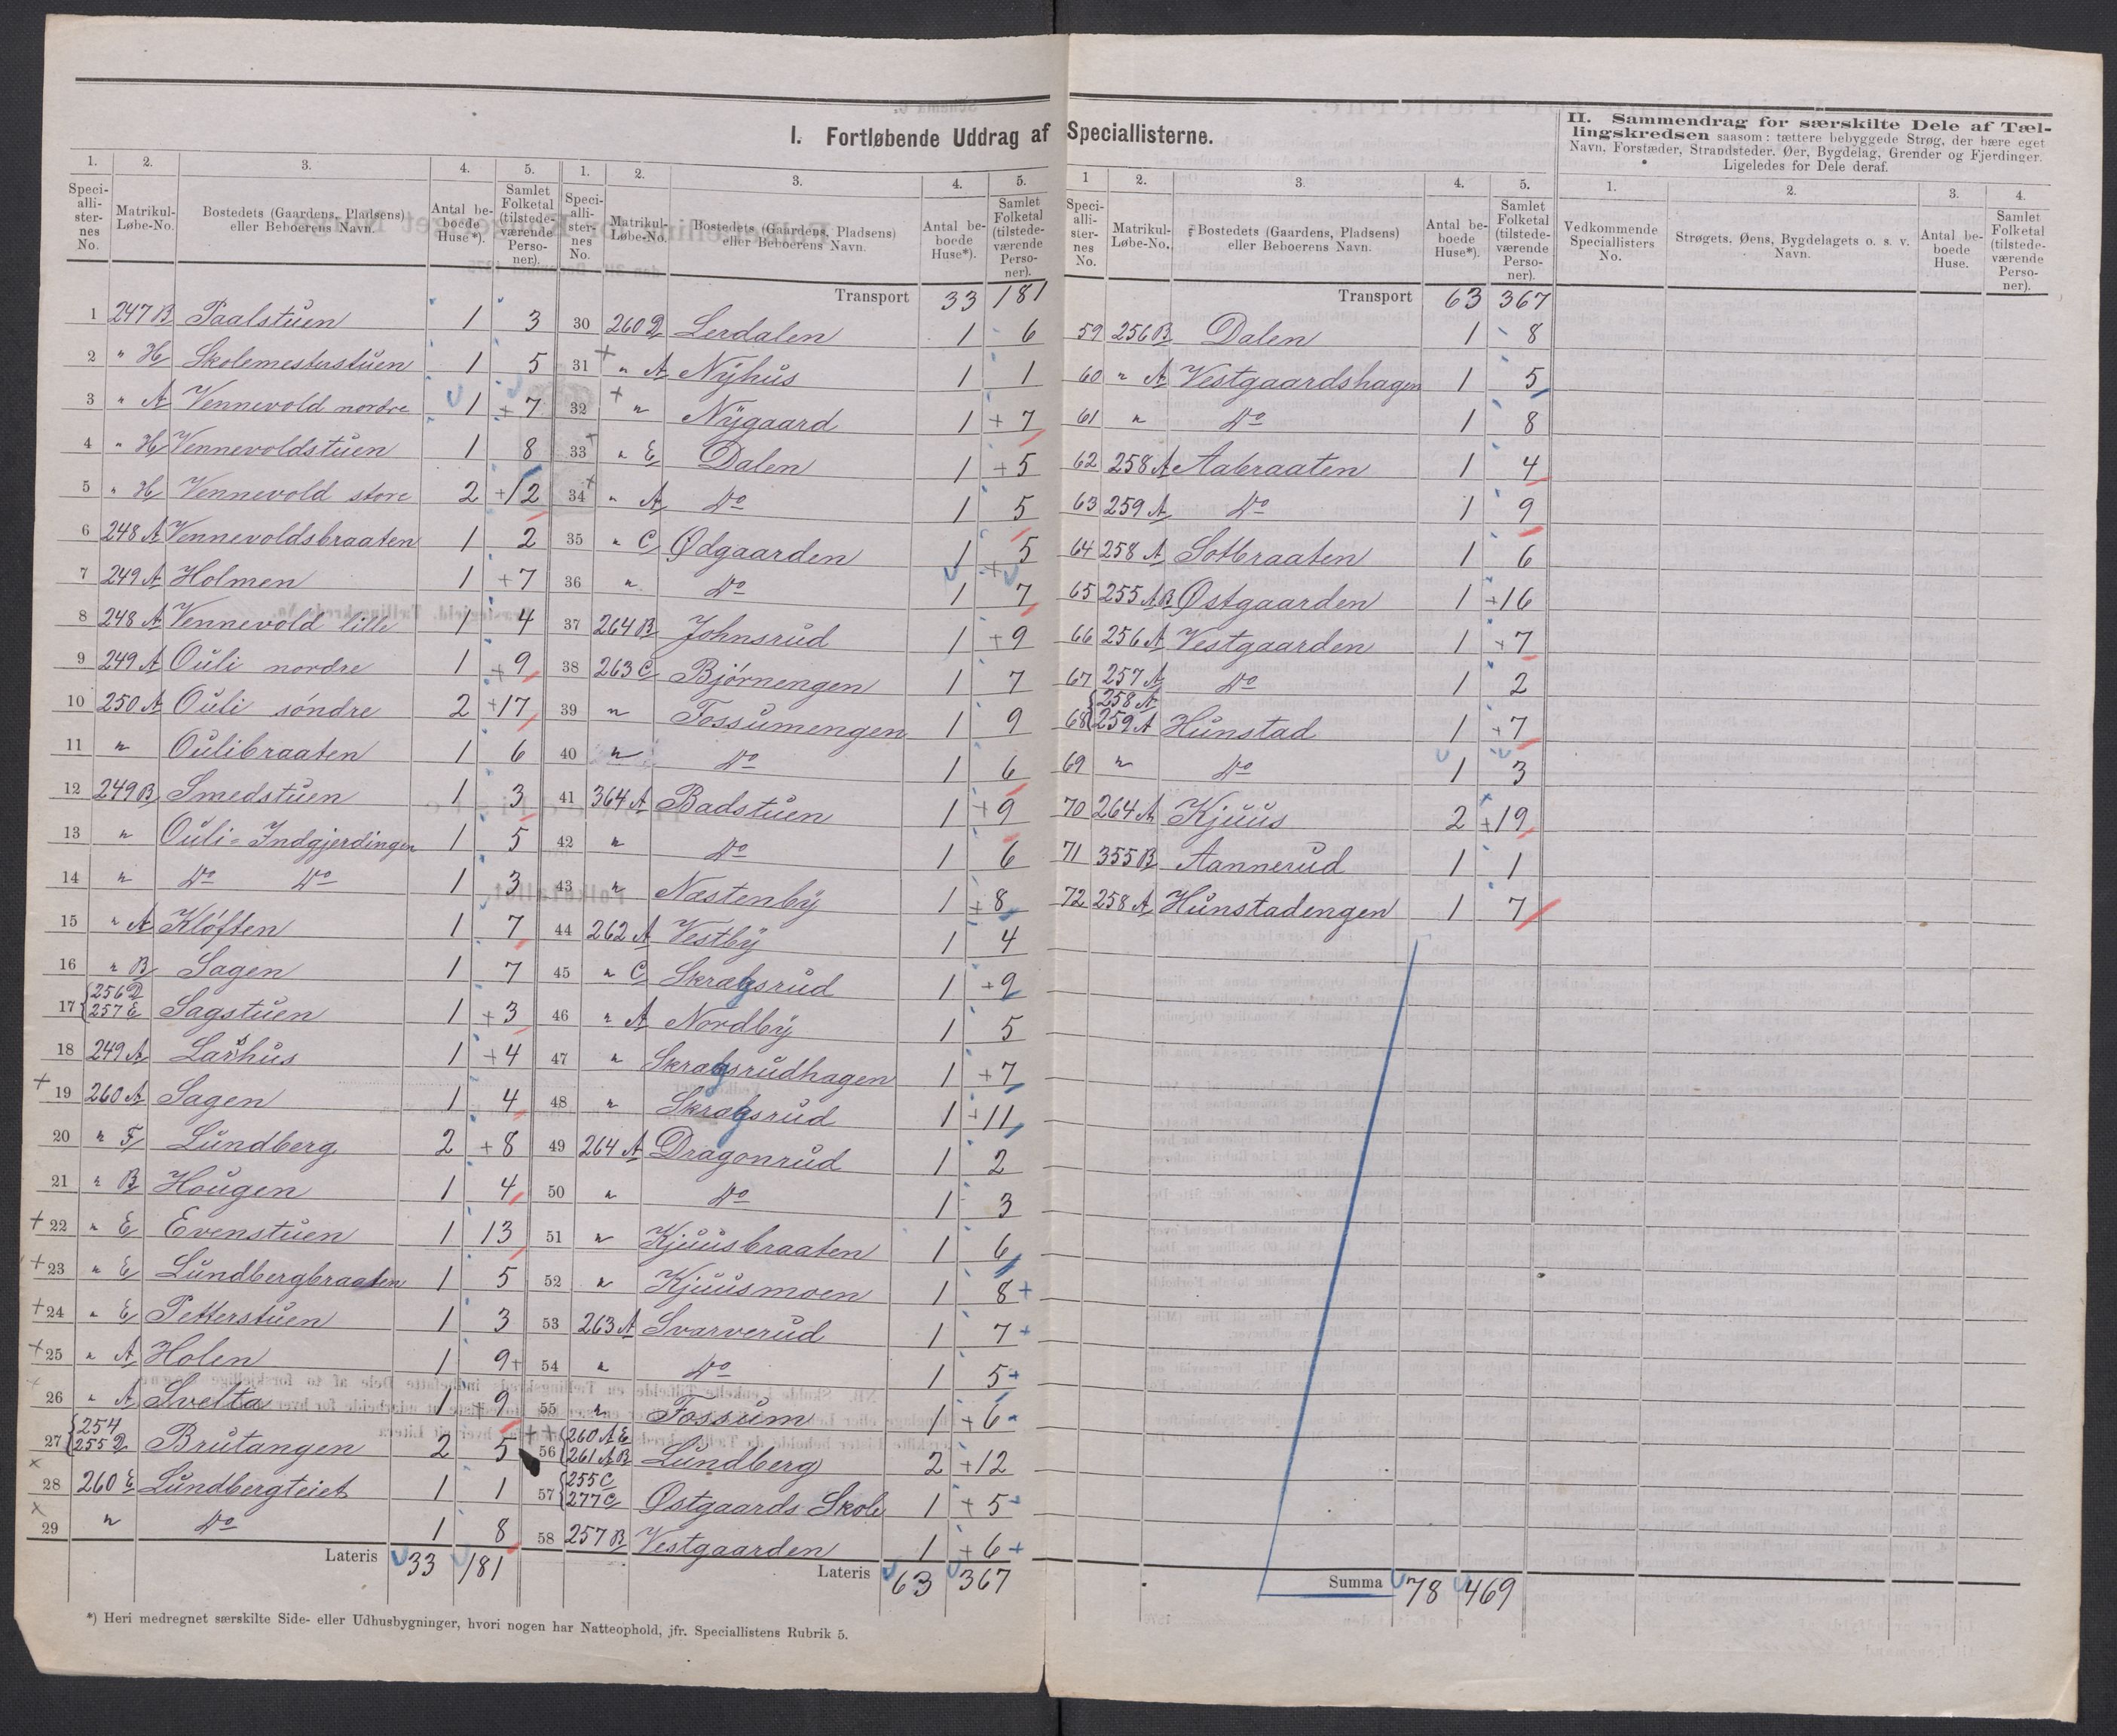 I. Fortløbende Uddrag af Speciallisterne.
1. 2. 3. 4. 5.
Speci-alli-ster-nes No. Matrikul-Løbe-No. Bostedets (Gaardens, Pladsens) eller Beboerens Navn. Antal be-boede Huse*). Samlet Folketal (tilstede-værende Perso-ner).
1 247 B Paalstuen 1 3
2 " H Skolemesterstuen 1 5
3 " A Vennevold nordre 1 + 7
4 " H Vennevoldstuen 1 8
5 " H Vennevold store 2 + 12
6 248 A Vennevoldsbraaten 1 2
7 249 A Holmen 1 + 7
8 248 A Vennevold lille 1 4
9 249 A Ouli nordre 1 + 9
10 250 A Ouli søndre 2 + 17
11 " Oulibraaten 1 6
12 249 B Smedstuen 1 3
13 " Ouli-Indgjerdingen 1 5
14 " Do Do 1 3
15 " A Kløften 1 7
16 " B Sagen 1 7
17 {256 D 257 E Sagstuen 1 + 3
18 249 A Larshus 1 + 4
+ 19 260 A Sagen 1 4
20 " F Lundberg 2 + 8
21 " B Hougen 1 4
+ 22 " E Evenstuen 1 13
+ 23 " E Lundbergbraaten 1 5
+ 24 " E Petterstuen 1 3
+ 25 " A Holen 1 9 +
26 " A Svelta 1 + 9
27 {254 255 D Brutangen 2 5
x 28 260 E Lundbergteiet 1 1
x 29 " Do 1 8
Lateris 33 181
*) Heri medregnet særskilte Side- eller Udhusbygninger, hvori nogen har Natteophold, jfr. Speciallistens Rubrik 5.
1. 2. 3. 4. 5.
Speci-alli-ster-nes No. Matrikul-Løbe-No. Bostedets (Gaardens, Pladsens) eller Beboerens Navn. Antal be-boede Huse*). Samlet Folketal (tilstede-værende Perso-ner).
Transport 33 181
30 260 D Lerdalen 1 6
31 + " A Nyhus 1 1
32 + " Nygaard 1 + 7
33 + " E Dalen 1 + 5
34 + " A Do 1 5
35 " C Ødgaarden 1 5
36 " Do 1 + 7
37 264 B Johnsrud 1 + 9
38 263 C Bjørnengen 1 7
39 " Fossumengen 1 9
40 " Do 1 6
41 364 A Badstuen 1 + 9
42 " Do 1 6
43 " Næstenby 1 + 8
44 262 A Vestby 1 4
45 " C Skragsrud 1 + 9
46 " A Nordby 1 5
47 " Skragsrudhagen 1 + 7
48 " Skragsrud 1 + 11
49 264 A Dragonrud 1 2
50 " Do 1 3
51 " Kjuusbraaten 1 6
52 " Kjuusmoen 1 8 +
53 263 A Svarverud 1 7 +
54 " Do 1 5 +
55 " Fossum 1 + 6
+ + 56 {260 A E 261 A B Lundberg 2 + 12
57 {255 C 277 C Østgaards Skole 1 + 5
58 257 B Vestgaarden 1 + 6 +
Lateris 63 367
1 2. 3. 4. 5.
Speci-alli-ster-nes No. Matrikul-Løbe-No. Bostedets (Gaardens, Pladsens) eller Beboerens Navn. Antal be-boede Huse*). Samlet Folketal (tilstede-værende Perso-ner).
Transport 63 367
59 256 B Dalen 1 8
60 " A Vestgaardshagen 1 5
61 " Do 1 8
62 258 A Aabraaten 1 4
63 259 A Do 1 9
64 258 A Sotbraaten 1 6
65 255 A B Østgaarden 1 + 16
66 256 A Vestgaarden 1 + 7
67 257 A Do 1 2
68 {258 A 259 A Hunstad 1 + 7
69 " Do 1 3
70 264 A Kjuus 2 + 19
71 355 B Aannerud 1 1
72 258 A Hunstadengen 1 7
Summa 78 469
II. Sammendrag for særskilte Dele af Tæl-
lingskredsen saasom: tættere bebyggede Strøg, der bære eget
Navn, Forstæder, Strandsteder, Øer, Bygdelag, Grender og Fjerdinger.
Ligeledes for Dele deraf.
1. 2. 3. 4.
Vedkommende Speciallisters No. Strøgets, Øens, Bygdelagets o. s. v. Navn. Antal be-boede Huse. Samlet Folketal (tilstede-værende Perso-ner).